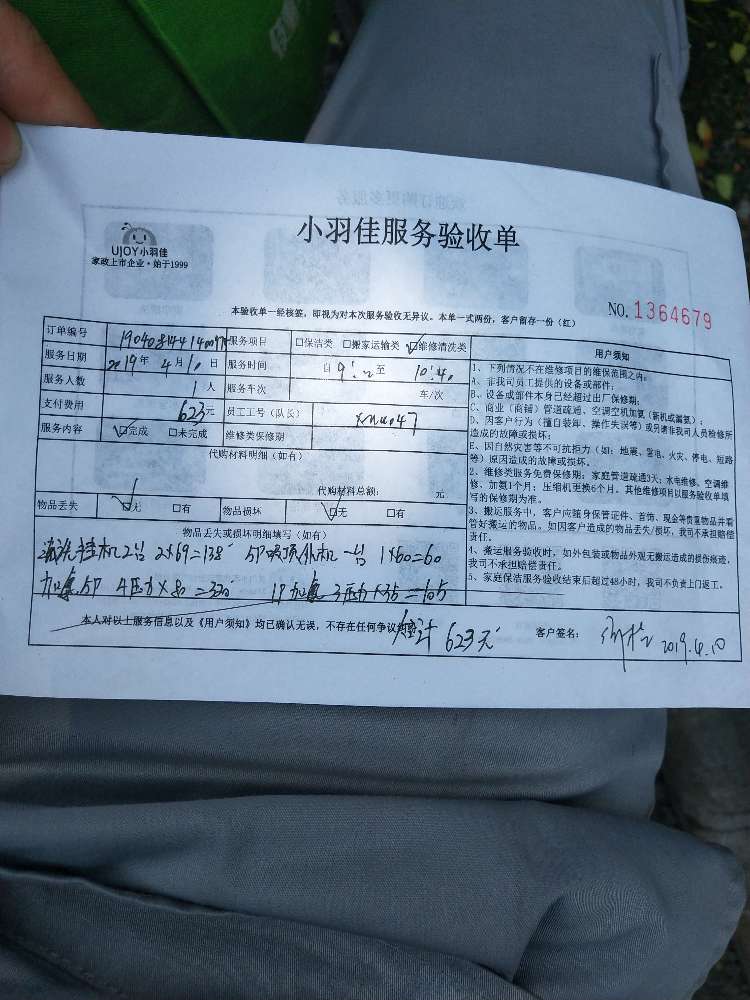 小羽佳服务验收单
UJOY小羽佳
家政上市企业·始于1999
本验收单一经核签,即视为对本次服务验收无异议。本单一式两份,客户留存一份(红)
NO.1364679
订单编号
服务项目 □保洁类 □搬家运输类 ☑维修清洗类
服务日期 2019年4月10日 服务时间 自9: 至 10:40
服务人数 1人 服务车次 车/次
支付费用 623元 员工工号(队长)
服务内容 ☑完成 □未完成 维修类保修期
代购材料明细(如有)
代购材料总额: 元
物品丢失 ☑无 □有 物品损坏 ☑无 □有
物品丢失或损坏明细填写(如有)
清洗挂机2台 2×69=138 5P吸顶外机一台 1×60=60
加氟5P 4压力×80=320 1P加氟 3压力×35=105
本人对以上服务信息以及《用户须知》均已确认无误,不存在任何争议纠纷
总计 623元
客户签名:
2019.4.10
用户须知
1、下列情况不在维修项目的维保范围之内:
A、非我司员工提供的设备或部件;
B、设备或部件本身已经超过出厂保修期;
C、商业(商铺)管道疏通、空调空机加氨(新机或漏氨);
D、因客户行为(擅自装卸、操作失误等)或另请非我司人员检修所
造成的故障或损坏;
E、因自然灾害等不可抗拒力(如:地震、雷电、火灾、停电、短路
等)原因造成的故障或损坏。
2、维修类服务免费保修期:家庭管道疏通3天;水电维修、空调维
修、加氨1个月;压缩机更换6个月。其他维修项目以服务验收单填
写的保修期为准。
3、搬运服务中,客户应随身保管证件、首饰、现金等贵重物品并看
管好搬运的物品。如因客户造成的物品丢失/损坏,我司不承担赔偿
责任。
4、搬运服务验收时,如外包装或物品外观无搬运造成的损伤痕迹,
我司不承担赔偿责任。
5、家庭保洁服务验收结束后超过48小时,我司不负责上门返工。